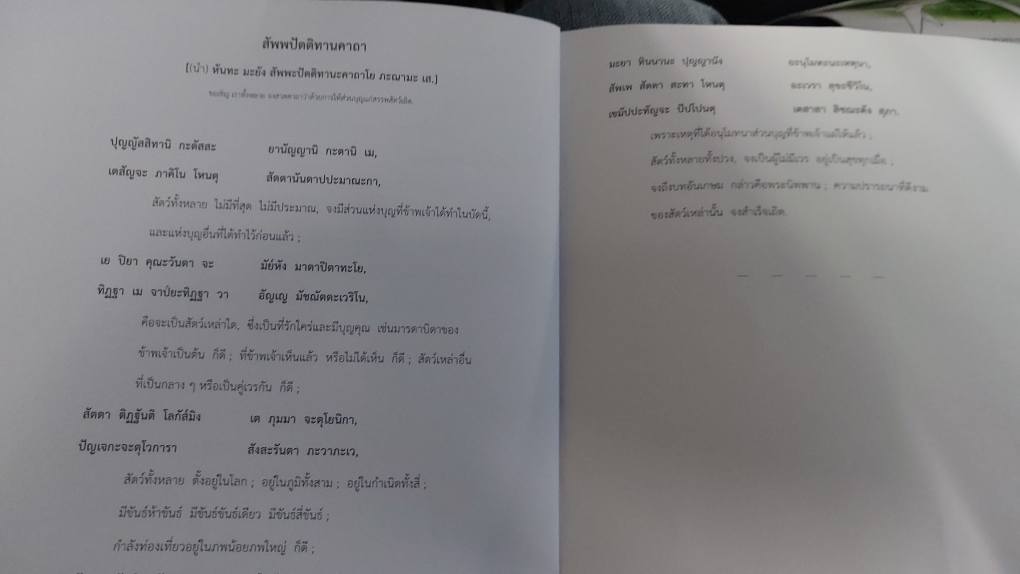 สัพพปัตติทานคาถา
[(นำ) หันทะ มะยัง สัพพะปัตติทานะคาถาโย ภะณามะ เส.]
ปุญญัสสิทานิ กะตัสสะ ยานัญญานิ กะตานิ เม,
เตสัญจะ ภาคิโน โหนตุ สัตตานันตาปปะมาณะกา,
สัตว์ทั้งหลาย ไม่มีที่สุด ไม่มีประมาณ, จงมีส่วนแห่งบุญที่ข้าพเจ้าได้ทำในบัดนี้,
และแห่งบุญอื่นที่ได้ทำไว้ก่อนแล้ว ;
เย ปิยา คุณะวันตา จะ มัยหัง มาตาปิตาทะโย,
ทิฏฐา เม จาปยะทิฏฐา วา อัญเญ มัชฌัตตะเวริโน,
คือจะเป็นสัตว์เหล่าใด, ซึ่งเป็นที่รักใคร่และมีบุญคุณ เช่นมารดาบิดาของ
ข้าพเจ้าเป็นต้น ก็ดี ; ที่ข้าพเจ้าเห็นแล้ว หรือไม่ได้เห็น ก็ดี ; สัตว์เหล่าอื่น
ที่เป็นกลาง ๆ หรือเป็นคู่เวรกัน ก็ดี ;
สัตตา ติฏฐันติ โลกัส๎มิง เต ภุมมา จะตุโยนิกา,
ปัญเจกะจะตุโวการา สังสะรันตา ภะวาภะเว,
สัตว์ทั้งหลาย ตั้งอยู่ในโลก ; อยู่ในภูมิทั้งสาม ; อยู่ในกำเนิดทั้งสี่ ;
มีขันธ์ห้าขันธ์ มีขันธ์ขันธ์เดียว มีขันธ์สี่ขันธ์ ;
กำลังท่องเที่ยวอยู่ในภพน้อยภพใหญ่ ก็ดี ;
มะยา ทินนานะ ปุญญานัง อะนุโมทะนะเหตุนา,
สัพเพ สัตตา สะทา โหนตุ อะเวรา สุขะชีวิโน,
เขมัปปะทัญจะ ปัปโปนตุ เตสาสา สิชฌะตัง สุภา.
เพราะเหตุที่ได้อนุโมทนาส่วนบุญที่ข้าพเจ้าแผ่ให้แล้ว ;
สัตว์ทั้งหลายทั้งปวง, จงเป็นผู้ไม่มีเวร อยู่เป็นสุขทุกเมื่อ ;
จงถึงบทอันเกษม กล่าวคือพระนิพพาน ; ความปรารถนาที่ดีงาม
ของสัตว์เหล่านั้น จงสำเร็จเถิด.